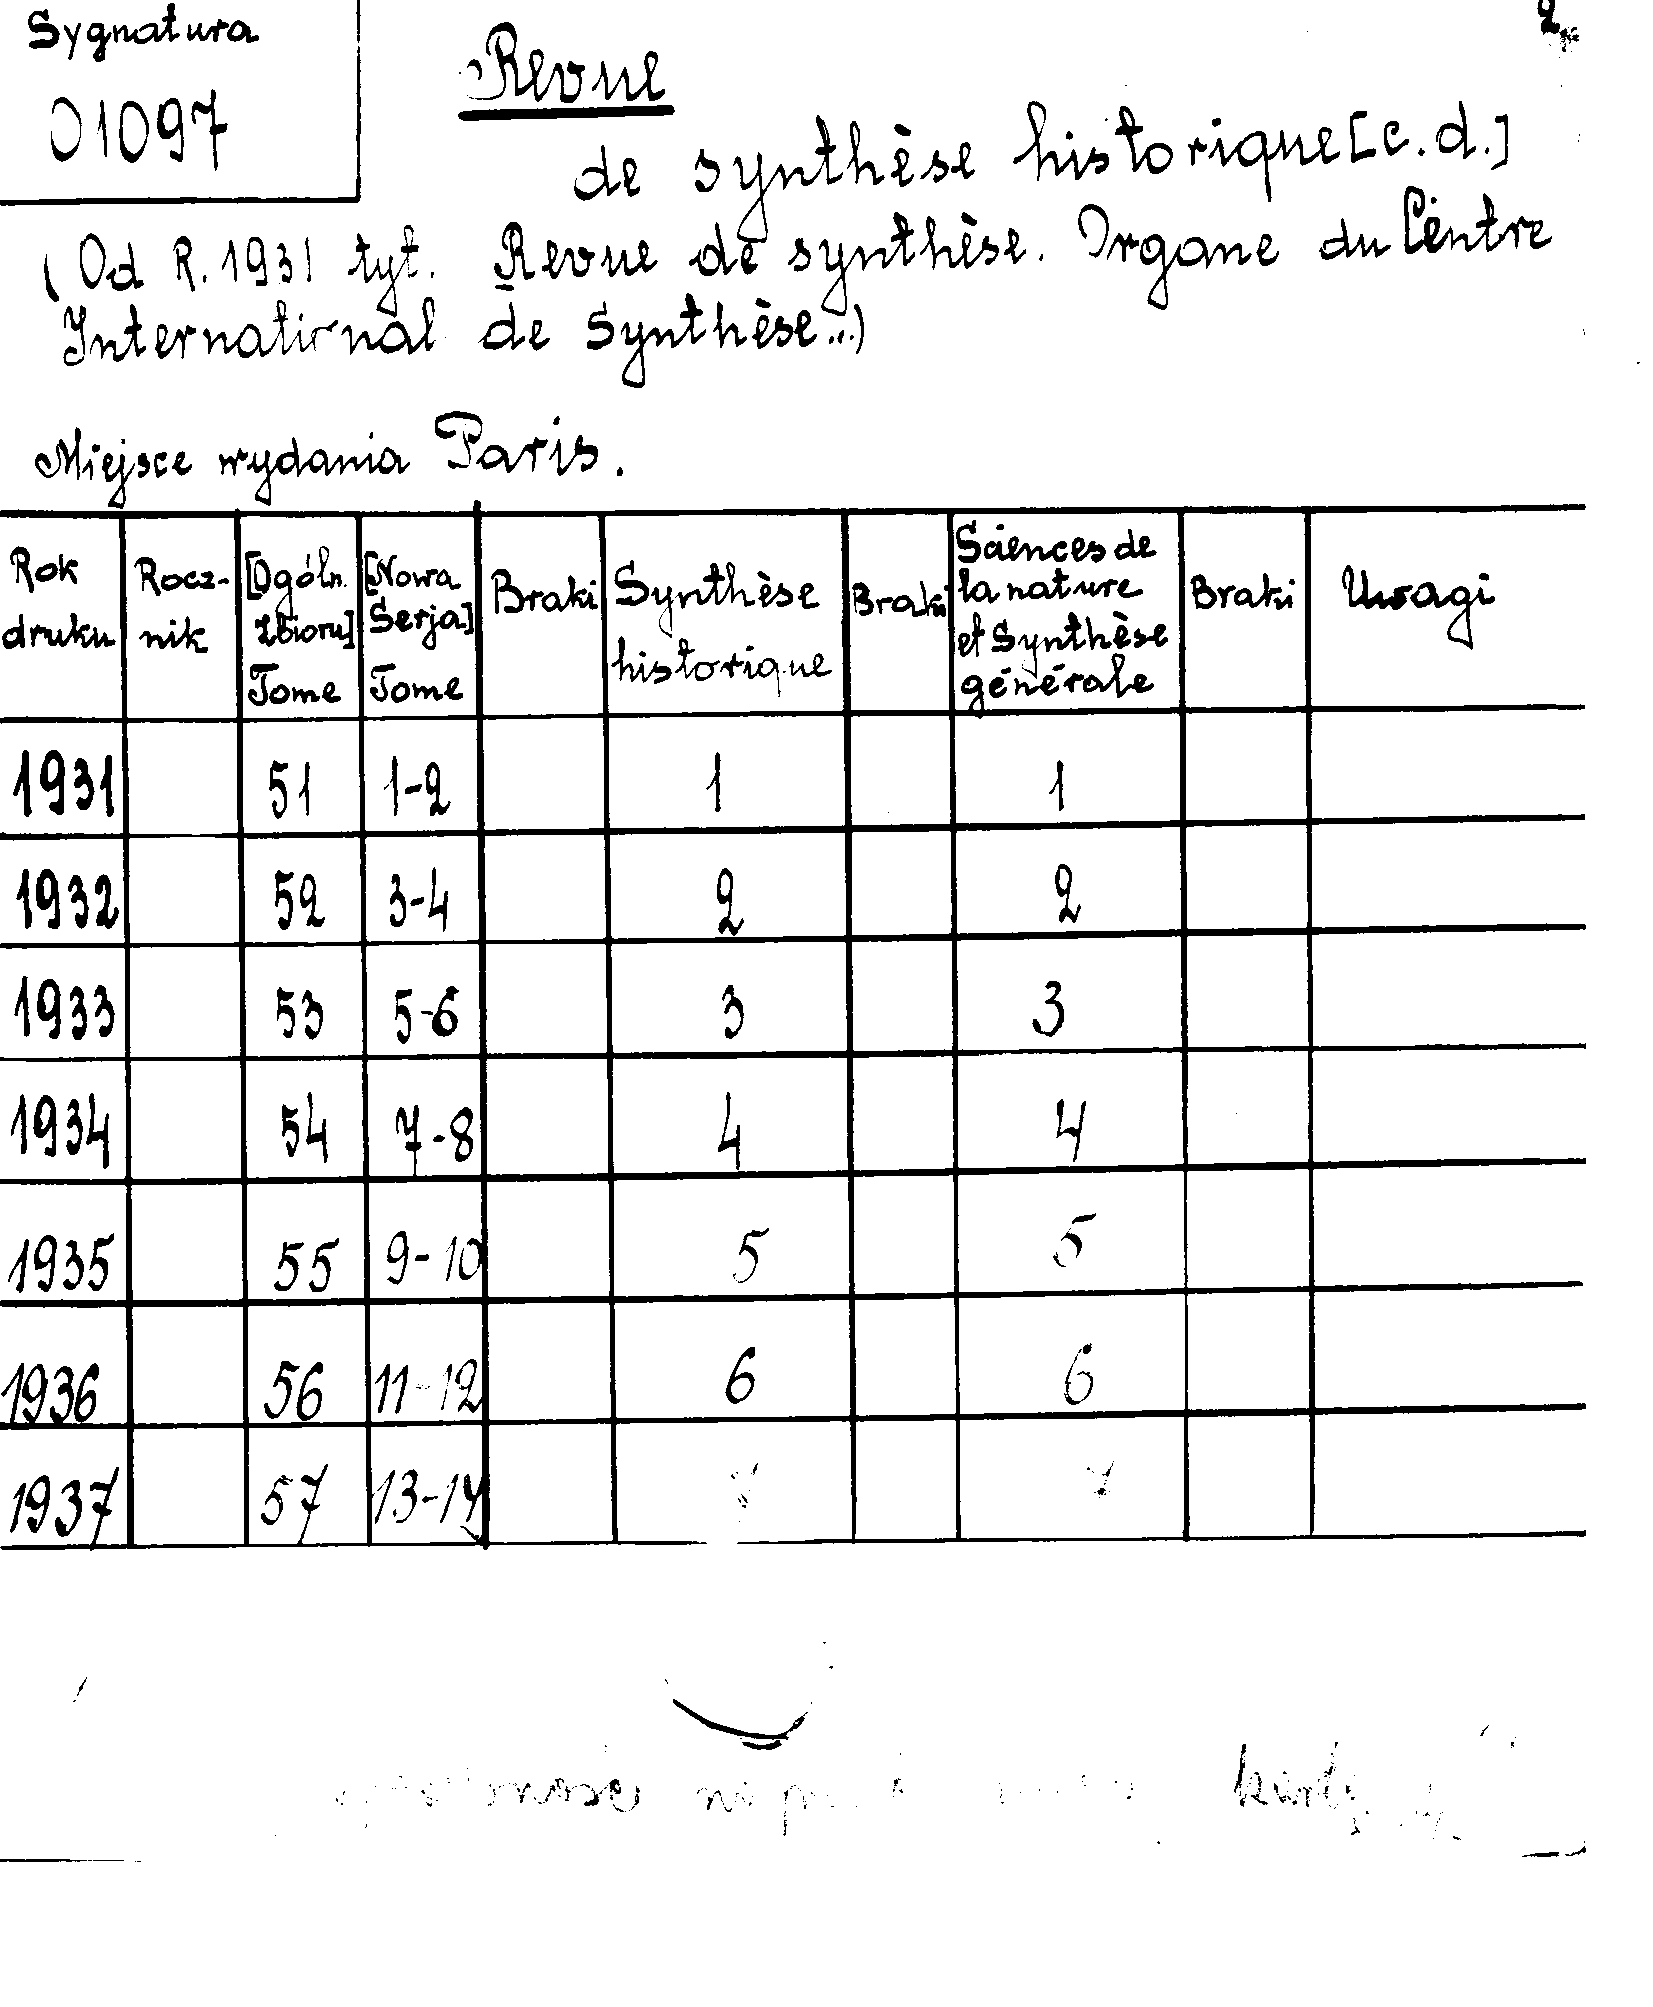 2.
Sygnatura
01097
Revue
de synthèse historique [c.d.]
(Od R. 1931 tyt. Revue de synthèse. Organe du Centre
International de Synthèse...)
Miejsce wydania Paris.
Rok druku | Rocz-nik | [Ogóln. zbioru] Tome | [Nowa Serja] Tome | Braki | Synthèse historique | Braki | Sciences de la nature et Synthèse générale | Braki | Uwagi
1931 | | 51 | 1-2 | | 1 | | 1 | |
1932 | | 52 | 3-4 | | 2 | | 2 | |
1933 | | 53 | 5-6 | | 3 | | 3 | |
1934 | | 54 | 7-8 | | 4 | | 4 | |
1935 | | 55 | 9-10 | | 5 | | 5 | |
1936 | | 56 | 11-12 | | 6 | | 6 | |
1937 | | 57 | 13-14 | | 7 | | 7 | |